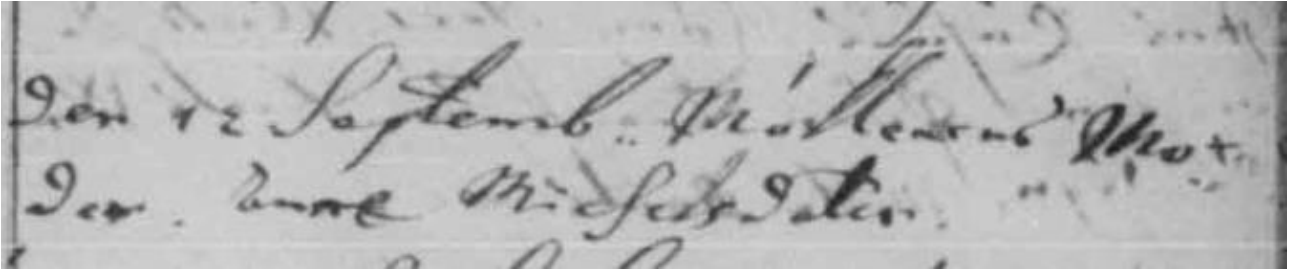 Den 12 Septemb. Møllerens Mo-
der. Anne Michelsdater.